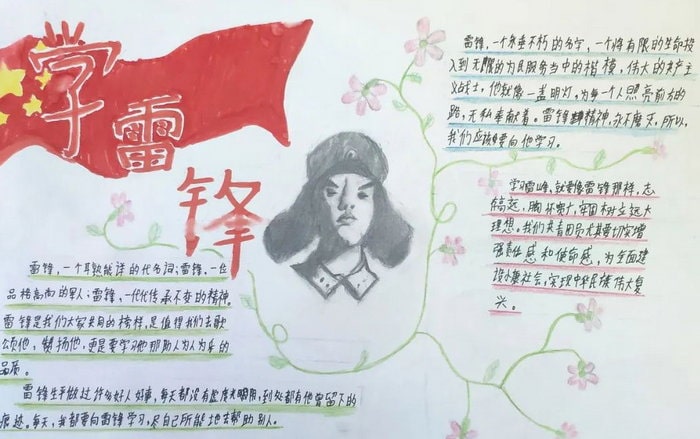 学
雷
锋
雷锋，一个永垂不朽的名字，一个将有限的生命投
入到无限的为民服务当中的楷模，伟大的共产主
义战士，他就像一盏明灯，为每一个人照亮前方的
路，无私奉献着。雷锋精神，永不磨灭，所以，
我们应该要向他学习。
学习雷峰，就要像雷锋那样，志
存高远，胸怀宽广，牢固树立远大
理想。我们来着田尤其要切实增
强责任感和使命感，为全面建
设小康社会，实现中华民族伟大复
兴。
雷锋，一个耳熟能详的代名词；雷锋，一位
品格高尚的军人；雷锋，一代代传承不变的精神。
雷锋是我们大家共同的榜样，是值得我们去歌
颂他，赞扬他，更是要学习他那助人为人为乐的
品质。
雷锋生平做过许多好人好事，每天都没有虚度光阴，到处都有他曾留下的
痕迹。每天，我都要向雷锋学习，尽自己所能地去帮助别人。